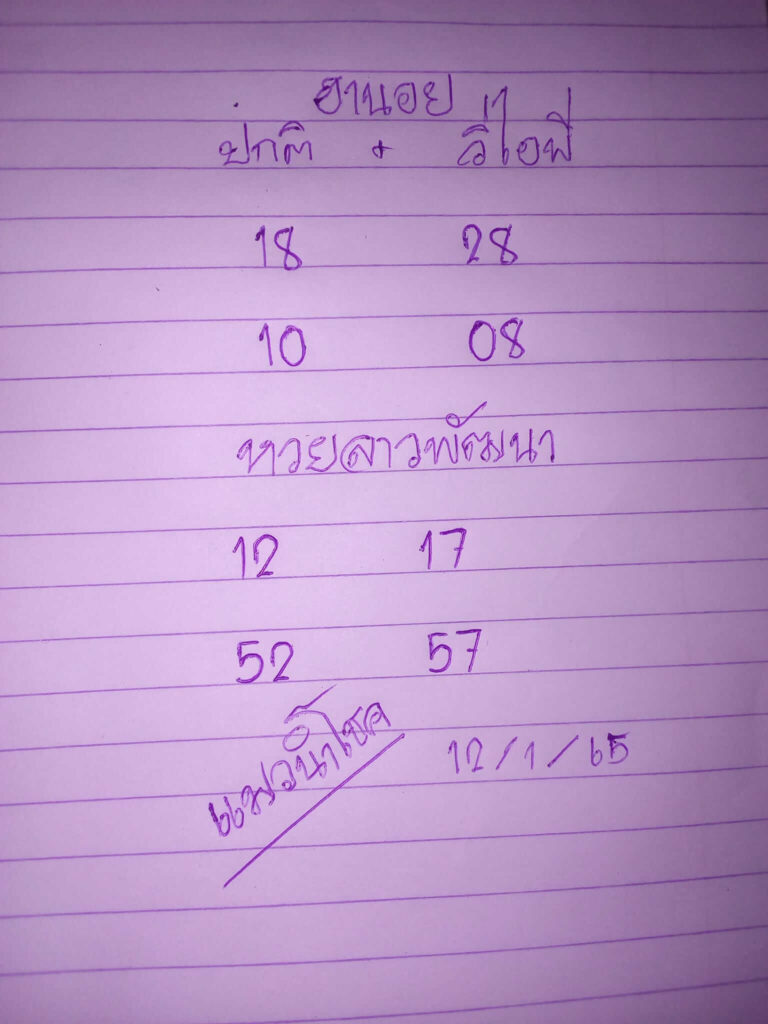 ฮานอย
ปกติ + วีไอพี
18 28
10 08
หวยลาวพัฒนา
12 17
52 57
แมวนำโชค
12/1/65